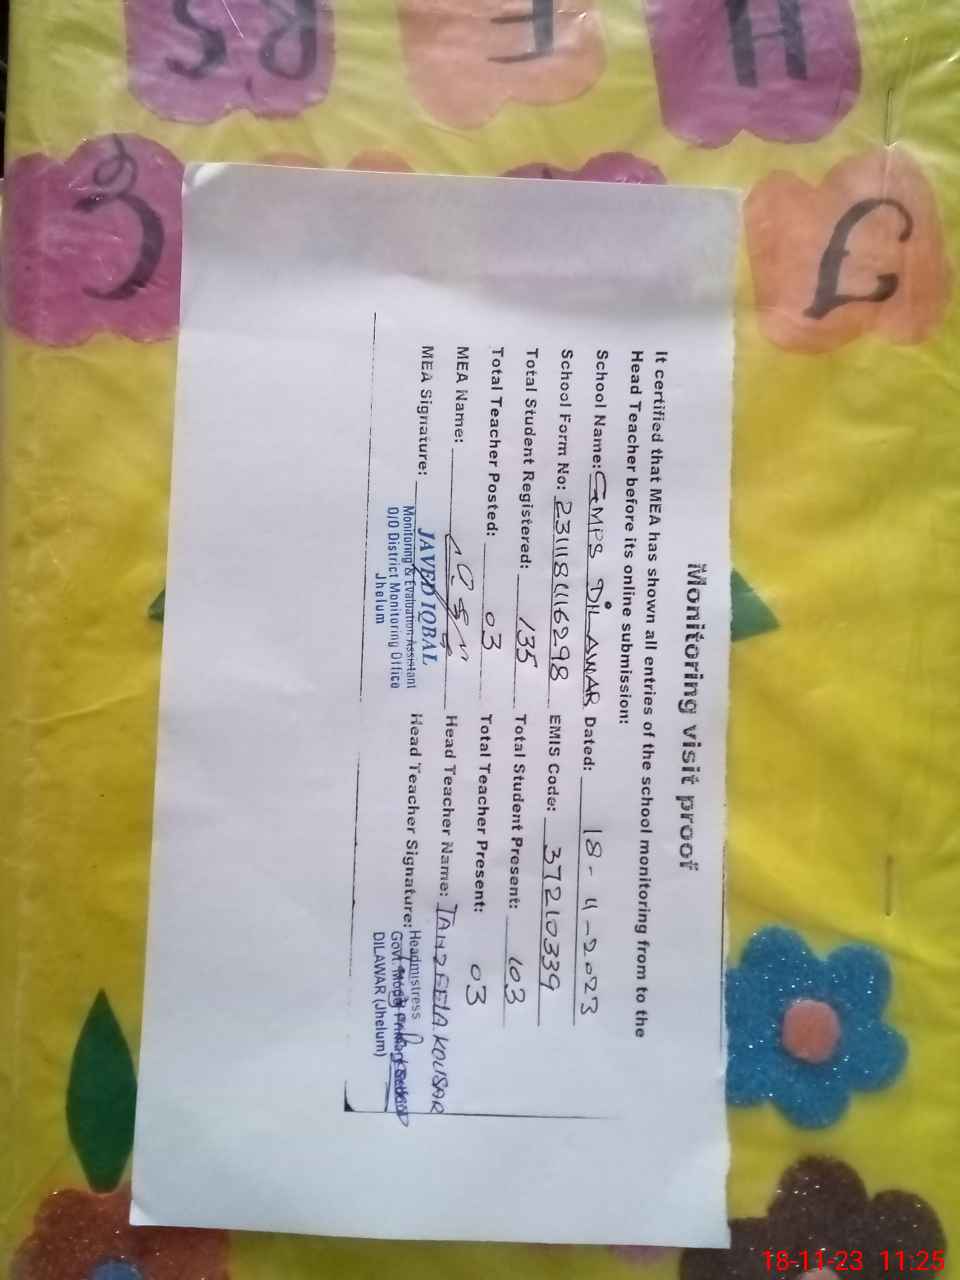 Monitoring visit proof
It certified that MEA has shown all entries of the school monitoring from to the
Head Teacher before its online submission:
School Name: GMPS DILAWAR Dated: 18-11-2023
School Form No: EMIS Code: 37210339
Total Student Registered: 135 Total Student Present: 103
Total Teacher Posted: 03 Total Teacher Present: 03
MEA Name: Head Teacher Name: TANZEELA KOUSAR
MEA Signature: Head Teacher Signature:
JAVED IQBAL
Monitoring & Evaluation Assistant
O/O District Monitoring Office
Jhelum
Headmistress
Govt. Model Primary School
DILAWAR (Jhelum)
18-11-23 11:25